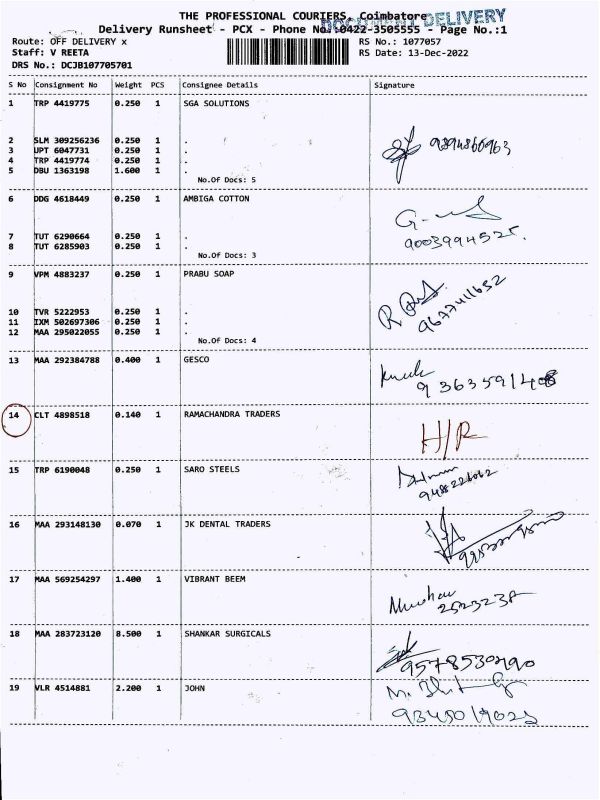 THE PROFESSIONAL COURIERS, Coimbatore
DOCUMENT DELIVERY
Delivery Runsheet - PCX - Phone No.:0422-3505555 - Page No.:1
Route: OFF DELIVERY x RS No.: 1077057
Staff: V REETA RS Date: 13-Dec-2022
DRS No.: DCJB107705701
S No Consignment No Weight PCS Consignee Details Signature
1 TRP 4419775 0.250 1 SGA SOLUTIONS
2 SLM 309256236 0.250 1 .
3 UPT 6047731 0.250 1 .
4 TRP 4419774 0.250 1 .
5 DBU 1363198 1.600 1 .
No.Of Docs: 5
6 DDG 4618449 0.250 1 AMBIGA COTTON
7 TUT 6290664 0.250 1 .
8 TUT 6285903 0.250 1 .
9003994525.
No.Of Docs: 3
9 VPM 4883237 0.250 1 PRABU SOAP
9677411632
10 TVR 5222953 0.250 1 .
11 IXM 502697306 0.250 1 .
12 MAA 295022055 0.250 1 .
No.Of Docs: 4
13 MAA 292384788 0.400 1 GESCO
14 CLT 4898518 0.140 1 RAMACHANDRA TRADERS
H/R
15 TRP 6190048 0.250 1 SARO STEELS
16 MAA 293148130 0.070 1 JK DENTAL TRADERS
17 MAA 569254297 1.400 1 VIBRANT BEEM
18 MAA 283723120 8.500 1 SHANKAR SURGICALS
9578530490
19 VLR 4514881 2.200 1 JOHN